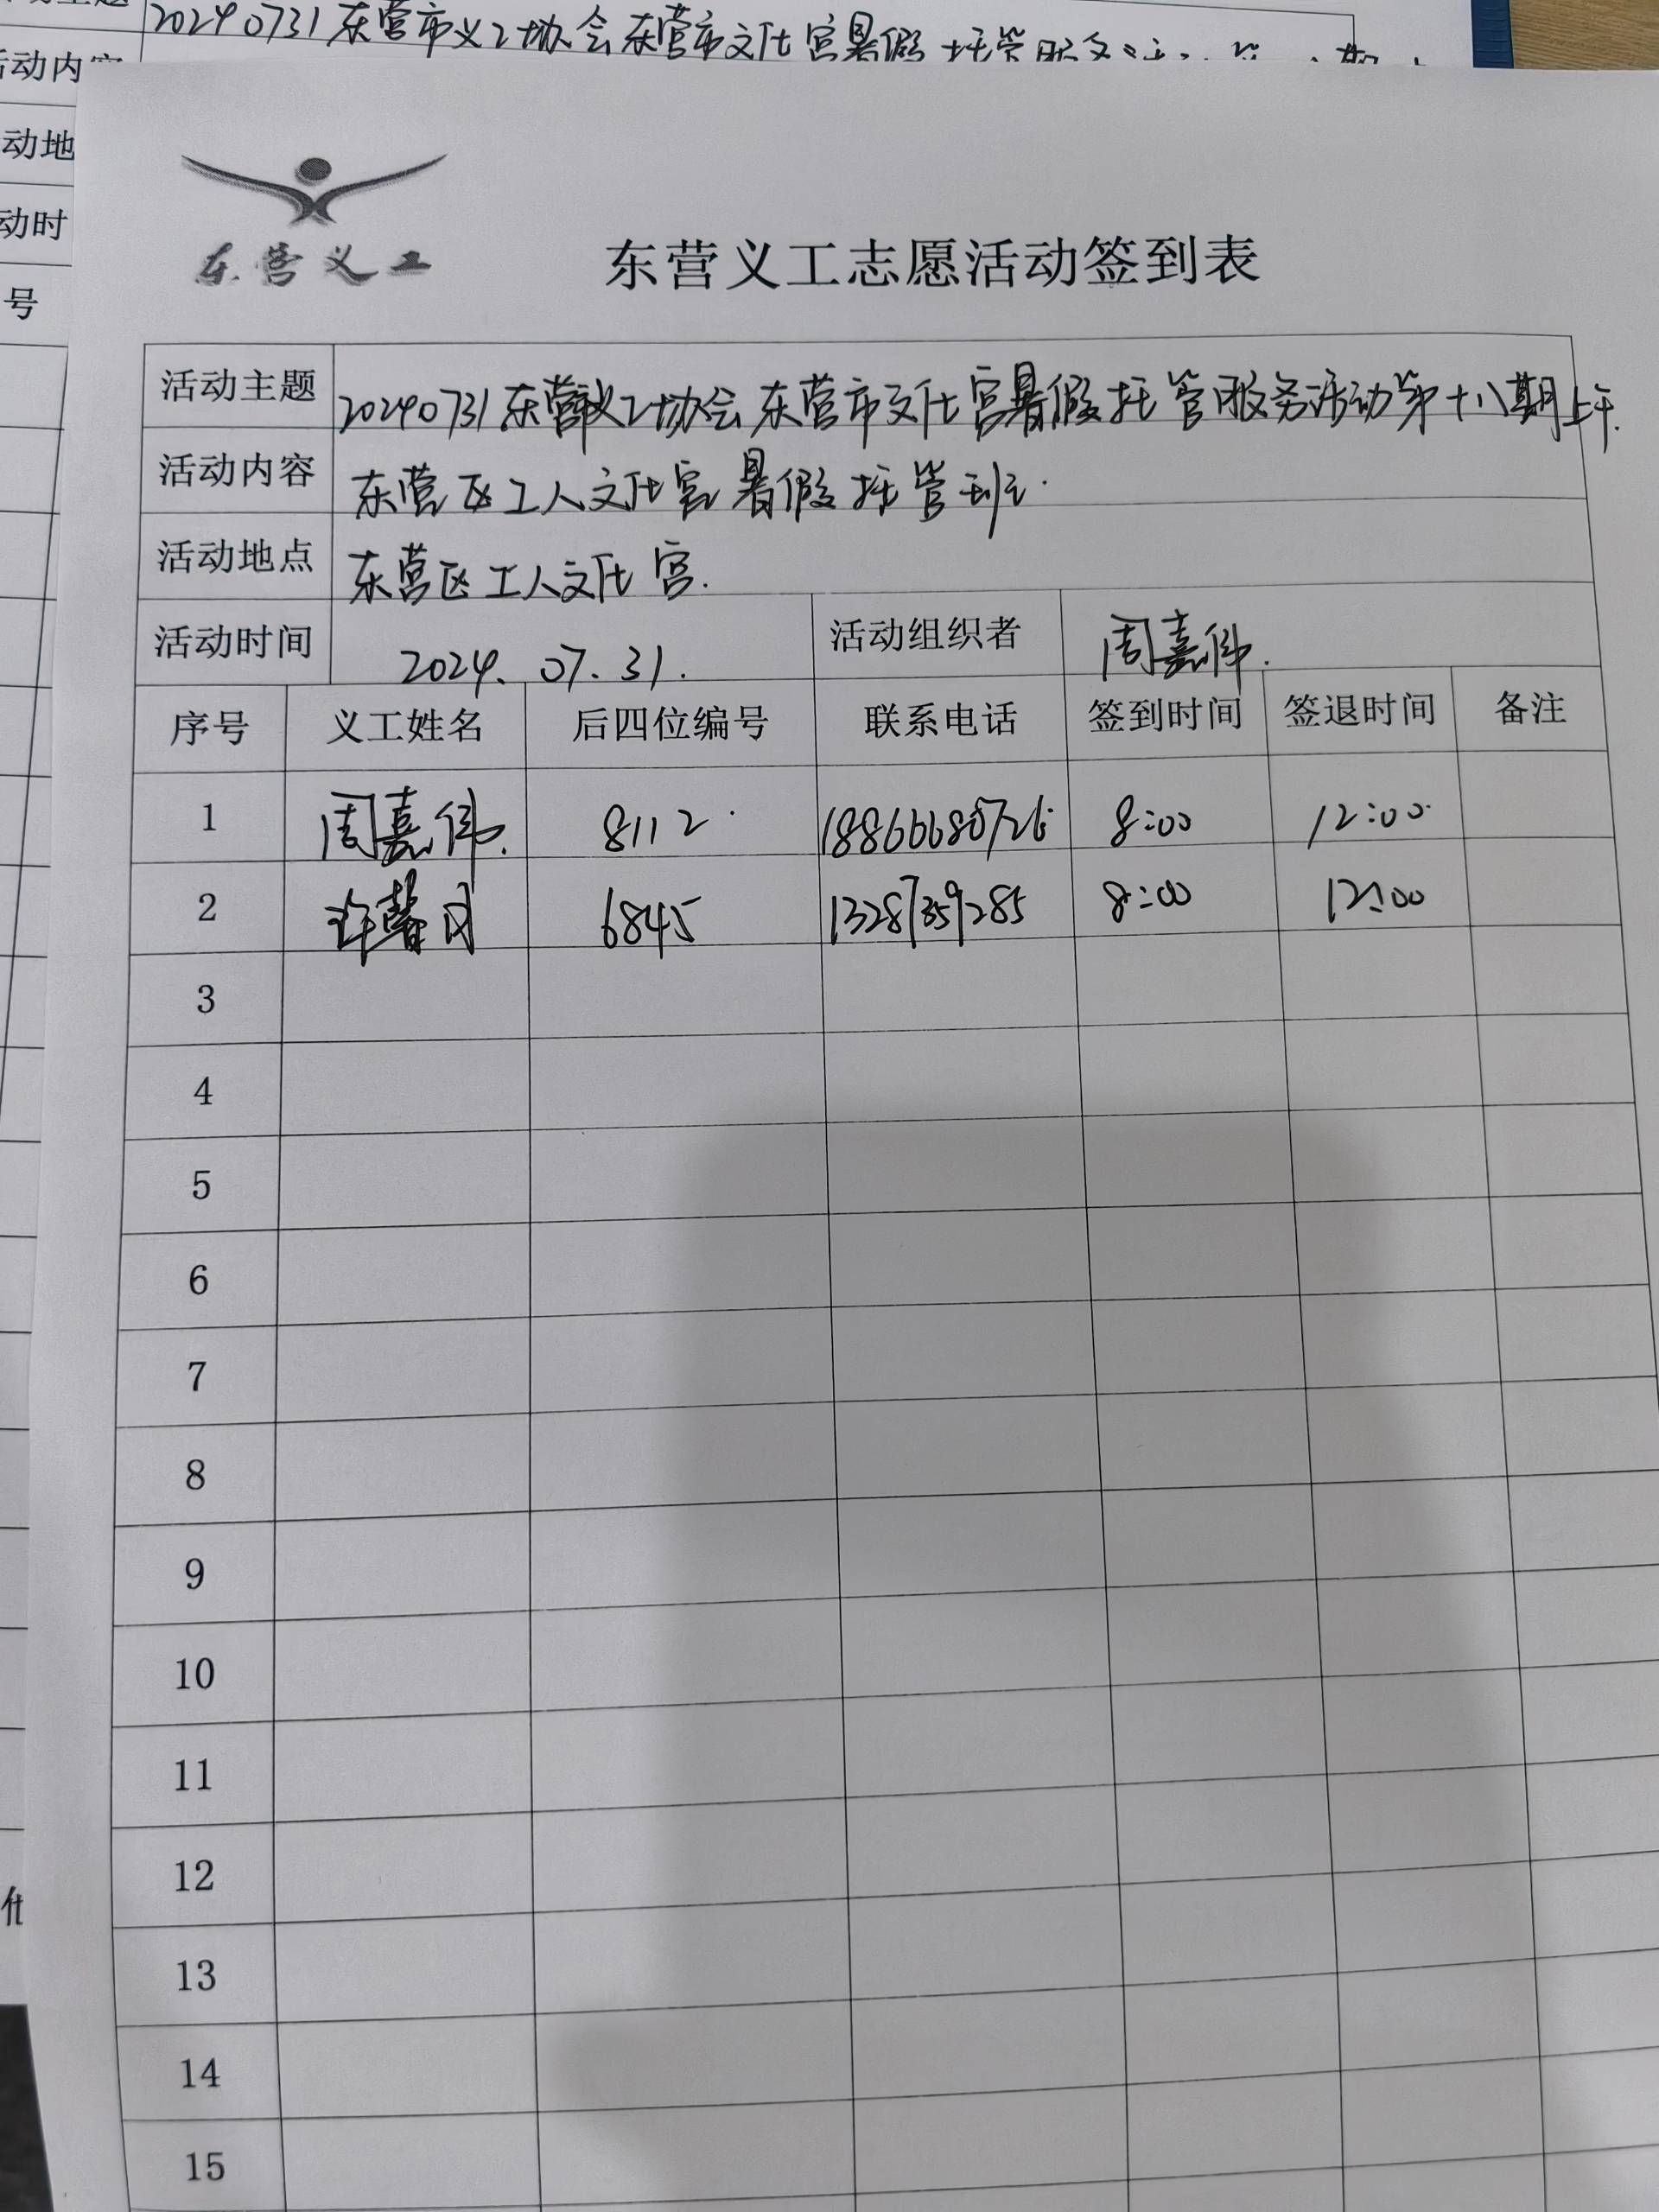 20240731东营市义工协会东营市文化宫暑假托管服务活
活动内容
动地
动时
号
东营义工
东营义工志愿活动签到表
活动主题 20240731东营市义工协会东营市文化宫暑假托管服务活动第十八期上午.
活动内容 东营区工人文化宫暑假托管班.
活动地点 东营区工人文化宫.
活动时间 2024.07.31. 活动组织者 周嘉伟.
序号 义工姓名 后四位编号 联系电话 签到时间 签退时间 备注
1 周嘉伟. 8112 18866680726 8:00 12:00
2 许馨月 6845 13287359285 8:00 12:00
3
4
5
6
7
8
9
10
11
12
13
14
15